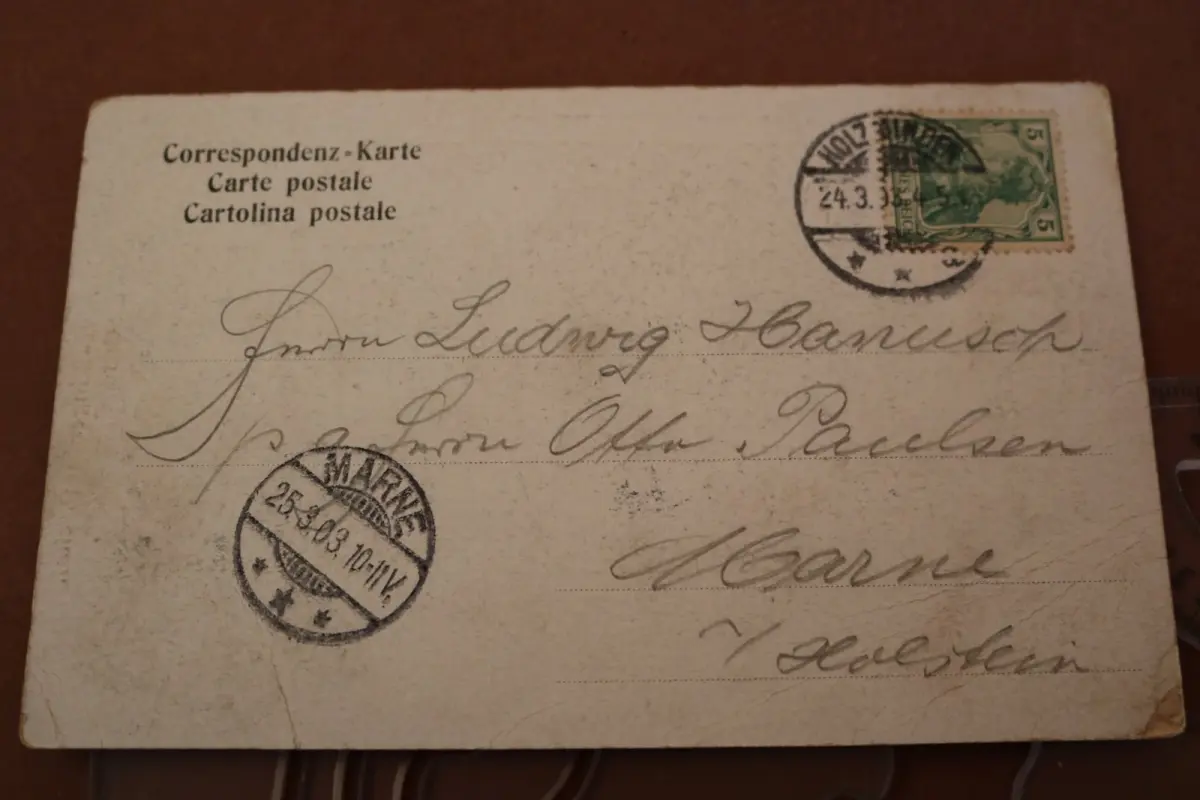 Correspondenz-Karte
Carte postale
Cartolina postale
HOLZMINDEN
24.3.03. 4-5
5
5
Herrn Ludwig Hanusch
p a Herrn Otto Paulsen
MARNE
25.3.03. 10-11 V.
Marne
i/Holstein